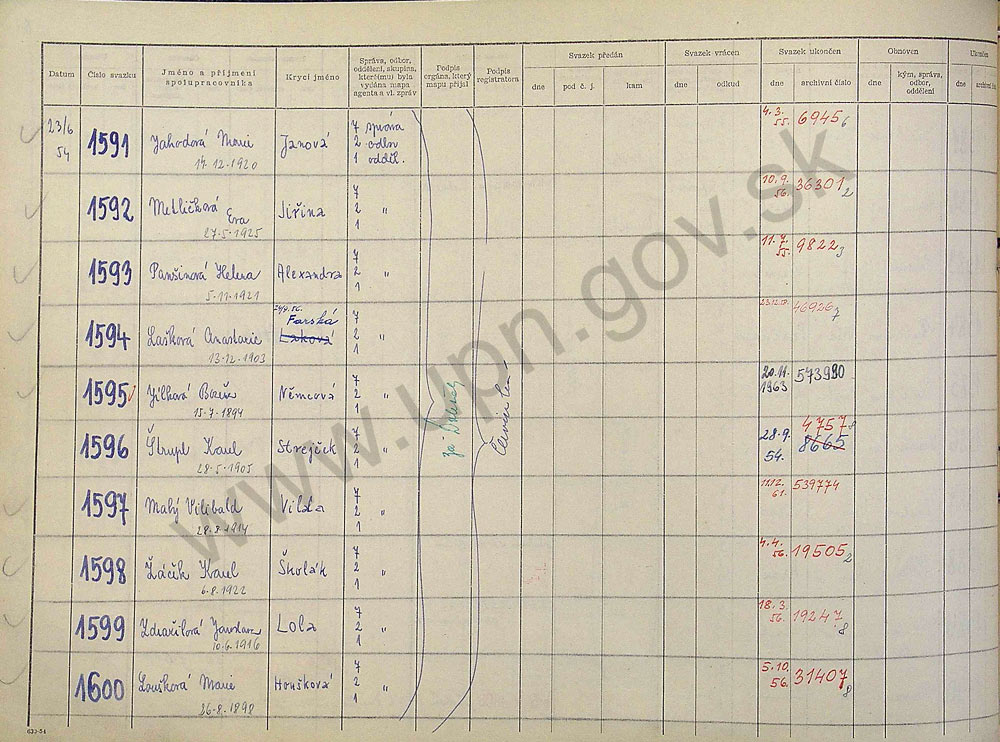 Datum
Číslo svazku
Jméno a příjmení spolupracovníka
Krycí jméno
Správa, odbor, oddělení, skupina, které(mu) byla vydána mapa agenta a vl. zpráv
Podpis orgána, který mapu přijal
Podpis registratora
Svazek předán
dne
pod č. j.
kam
Svazek vrácen
dne
odkud
Svazek ukončen
dne
archivní číslo
Obnoven
dne
kým, správa, odbor, oddělení
dne
23/6 54
1591 Jahodová Marie Janová 7 správa 4.3. 6945 6
14.12.1920 2 odbor 55.
1 odděl.
1592 Metličková Eva Jiřina 7 2 1 " 10.9. 56. 36301 2
27.5.1925
1593 Panšinová Helena Alexandra 7 2 1 " 11.7. 55. 9822 3
5.11.1921
1594 Lašková Anastazie Farská Laková 7 2 1 " 46926 7
13.12.1903
1595 Bozena Němcová 7 2 1 " 20.11. 1963 573990
15.7.1894
za
1596 Štrupl Karel Strejček 7 2 1 " 28.9. 54. 4757 8 8665
28.5.1905
1597 Malý Vilibald Vilda 7 2 1 " 11.12. 61. 539774
28.8.1914
1598 Žáčik Karel Školák 7 2 1 " 4.4. 56. 19505 2
6.8.1922
1599 Zdražilová Jaroslava Lola 7 2 1 " 18.3. 56. 19247 8
10.6.1916
1600 Loušková Marie Houšková 7 2 1 " 5.10. 56. 31407 8
26.8.1898
www.upn.gov.sk
633-54